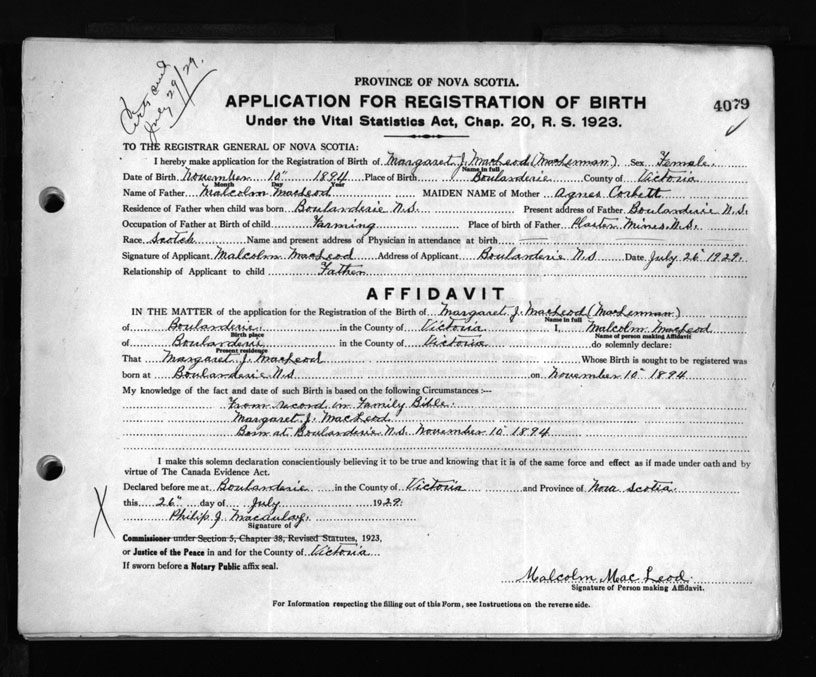 Certs and
July 29/29.
PROVINCE OF NOVA SCOTIA.
APPLICATION FOR REGISTRATION OF BIRTH
4079
Under the Vital Statistics Act, Chap. 20, R. S. 1923.
TO THE REGISTRAR GENERAL OF NOVA SCOTIA:
I hereby make application for the Registration of Birth of Margaret J. MacLeod (MacLennan) Sex Female
Name in full
Date of Birth November 10" 1894 Place of Birth Boulanderie County of Victoria
Month Day Year
Name of Father Malcolm MacLeod MAIDEN NAME of Mother Agnes Corbett
Residence of Father when child was born Boulanderie N.S. Present address of Father Boulanderie N.S.
Occupation of Father at Birth of child Farming Place of birth of Father Plaster Mines N.S.
Race Scotch Name and present address of Physician in attendance at birth
Signature of Applicant Malcolm MacLeod Address of Applicant Boulanderie N.S Date July 26" 1929.
Relationship of Applicant to child Father
AFFIDAVIT
IN THE MATTER of the application for the Registration of the Birth of Margaret J. MacLeod (MacLennan)
Name in full
of Boulanderie in the County of Victoria I, Malcolm MacLeod
Birth place Name of person making Affidavit
of Boulanderie in the County of Victoria do solemnly declare:
Present residence
That Margaret J. MacLeod Whose Birth is sought to be registered was
born at Boulanderie N.S on November 10" 1894
My knowledge of the fact and date of such Birth is based on the following Circumstances :—
From record in Family Bible.
Margaret J. MacLeod
Born at Boulanderie N.S. November 10 1894
I make this solemn declaration conscientiously believing it to be true and knowing that it is of the same force and effect as if made under oath and by
virtue of The Canada Evidence Act.
Declared before me at Boulanderie in the County of Victoria and Province of Nova Scotia.
this 26" day of July 1929.
Philip J. Macaulay.
Signature of
Commissioner under Section 5, Chapter 38, Revised Statutes, 1923,
or Justice of the Peace in and for the County of Victoria
If sworn before a Notary Public affix seal.
Malcolm Mac Leod.
Signature of Person making Affidavit.
For Information respecting the filling out of this Form, see Instructions on the reverse side.